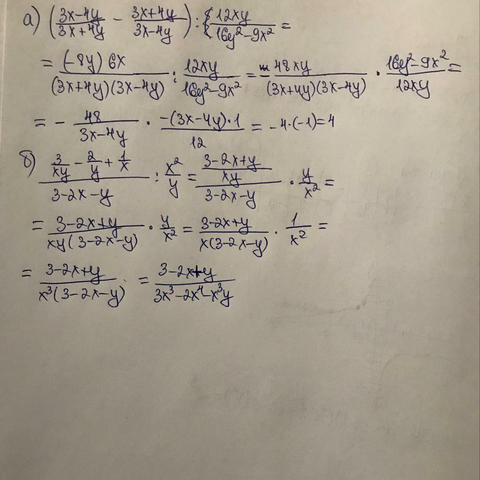 а) ((3x-4y)/(3x+4y) - (3x+4y)/(3x-4y)) : (12xy)/(16y²-9x²) =
= ((-8y) 6x)/((3x+4y)(3x-4y)) : (12xy)/(16y²-9x²) = (-48xy)/((3x+4y)(3x-4y)) · (16y²-9x²)/(12xy) =
= - 48/(3x-4y) · (-(3x-4y)·1)/12 = -4·(-1)=4
б) (3/(xy) - 2/y + 1/x)/(3-2x-y) : x²/y = ((3-2x+y)/(xy))/(3-2x-y) · y/x² =
= (3-2x+y)/(xy(3-2x-y)) · y/x² = (3-2x+y)/(x(3-2x-y)) · 1/x² =
= (3-2x+y)/(x³(3-2x-y)) = (3-2x+y)/(3x³-2x⁴-x³y)